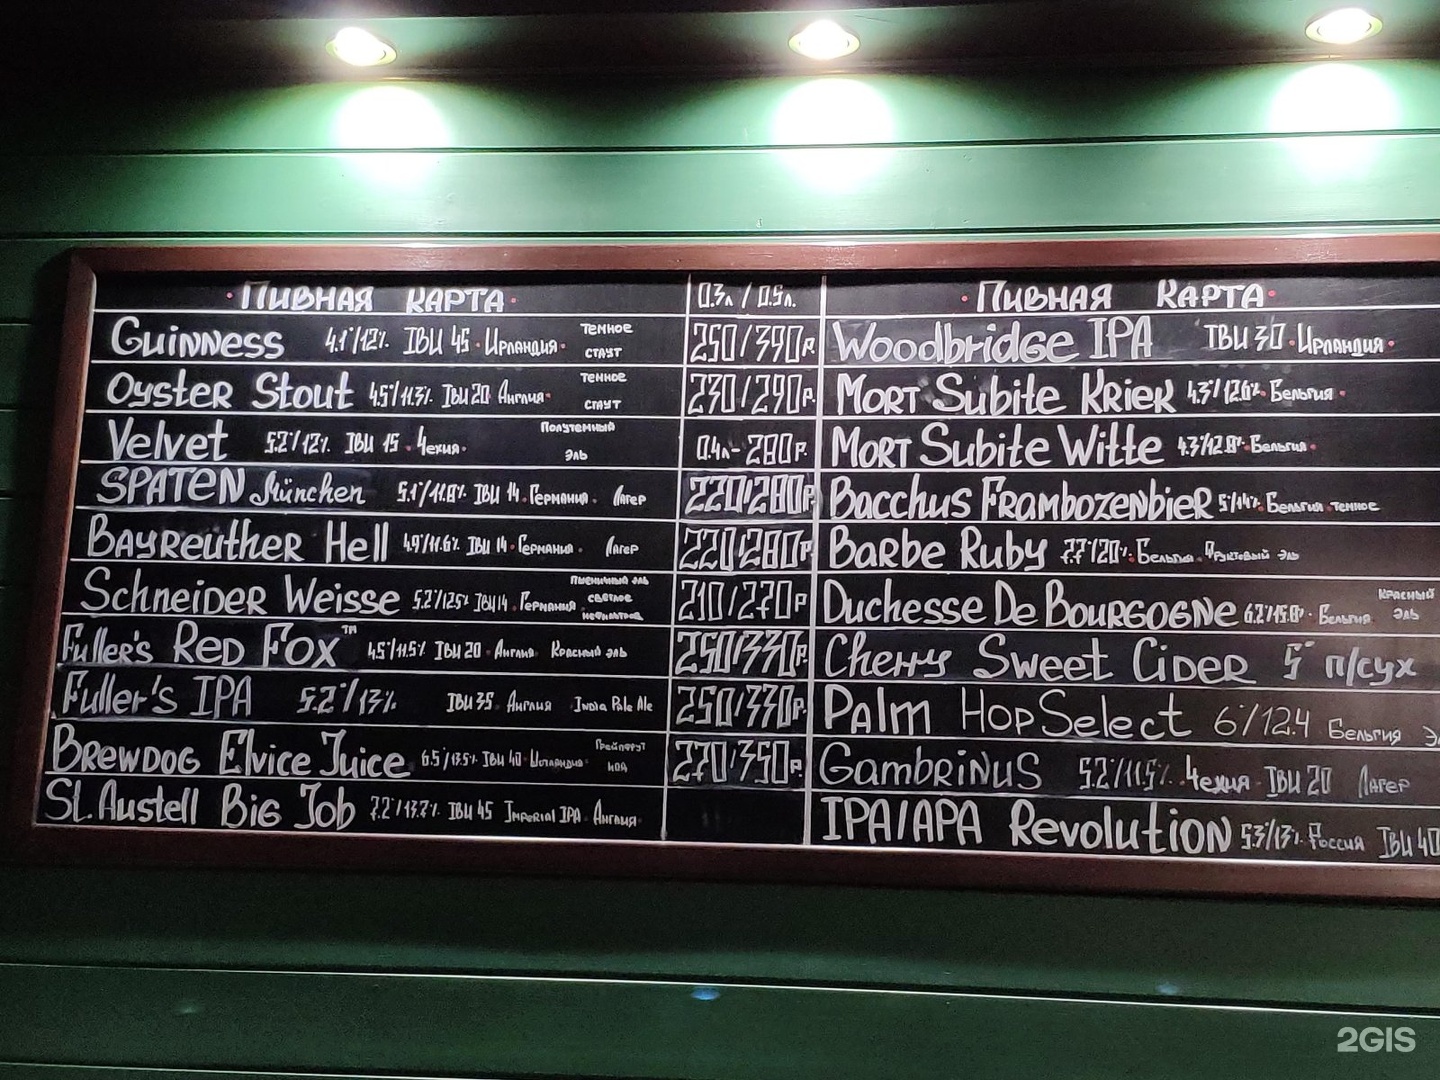 · Пивная карта · 0.3л / 0.5л.
Guinness 4.1°/12% IBU 45 · Ирландия · темное стаут 250/390р.
Oyster Stout 4.5°/11.3% IBU 20 Англия · темное стаут 230/290р.
Velvet 5.2°/12% IBU 15 · Чехия · Полутемный эль 0.4л - 280р.
SPATEN München 5.1°/11.8% IBU 14 · Германия · Лагер 220/280р.
Bayreuther Hell 4.9°/11.6% IBU 14 · Германия · Лагер 220/280р.
Schneider Weisse 5.2°/12.5% IBU 14 · Германия пшеничный эль светлое 210/270р
Fuller's Red Fox™ 4.5°/11.5% IBU 20 · Англия Красный эль 250/330р.
Fuller's IPA 5.2°/13% IBU 35 · Англия India Pale Ale 250/330р.
Brewdog Elvice Juice 6.5/13.5% IBU 40 · Шотландия Грейпфрут 270/350р.
St. Austell Big Job 7.2°/13.7% IBU 45 Imperial IPA · Англия
· Пивная карта ·
Woodbridge IPA IBU 30 · Ирландия ·
Mort Subite Kriek 4.3°/12.6% · Бельгия ·
Mort Subite Witte 4.3°/12.8% · Бельгия ·
Bacchus Frambozenbier 5°/14% · Бельгия · темное
Barbe Ruby 7.7°/20% · Бельгия · Фруктовый эль
Duchesse De Bourgogne 6.2°/15.8% · Бельгия красный эль
Cherry Sweet Cider 5° п/сух
Palm Hop Select 6°/12.4 Бельгия
Gambrinus 5.2°/11.5% · Чехия · IBU 20 Лагер
IPA/APA Revolution 5.3°/13% · Россия IBU 40
2GIS